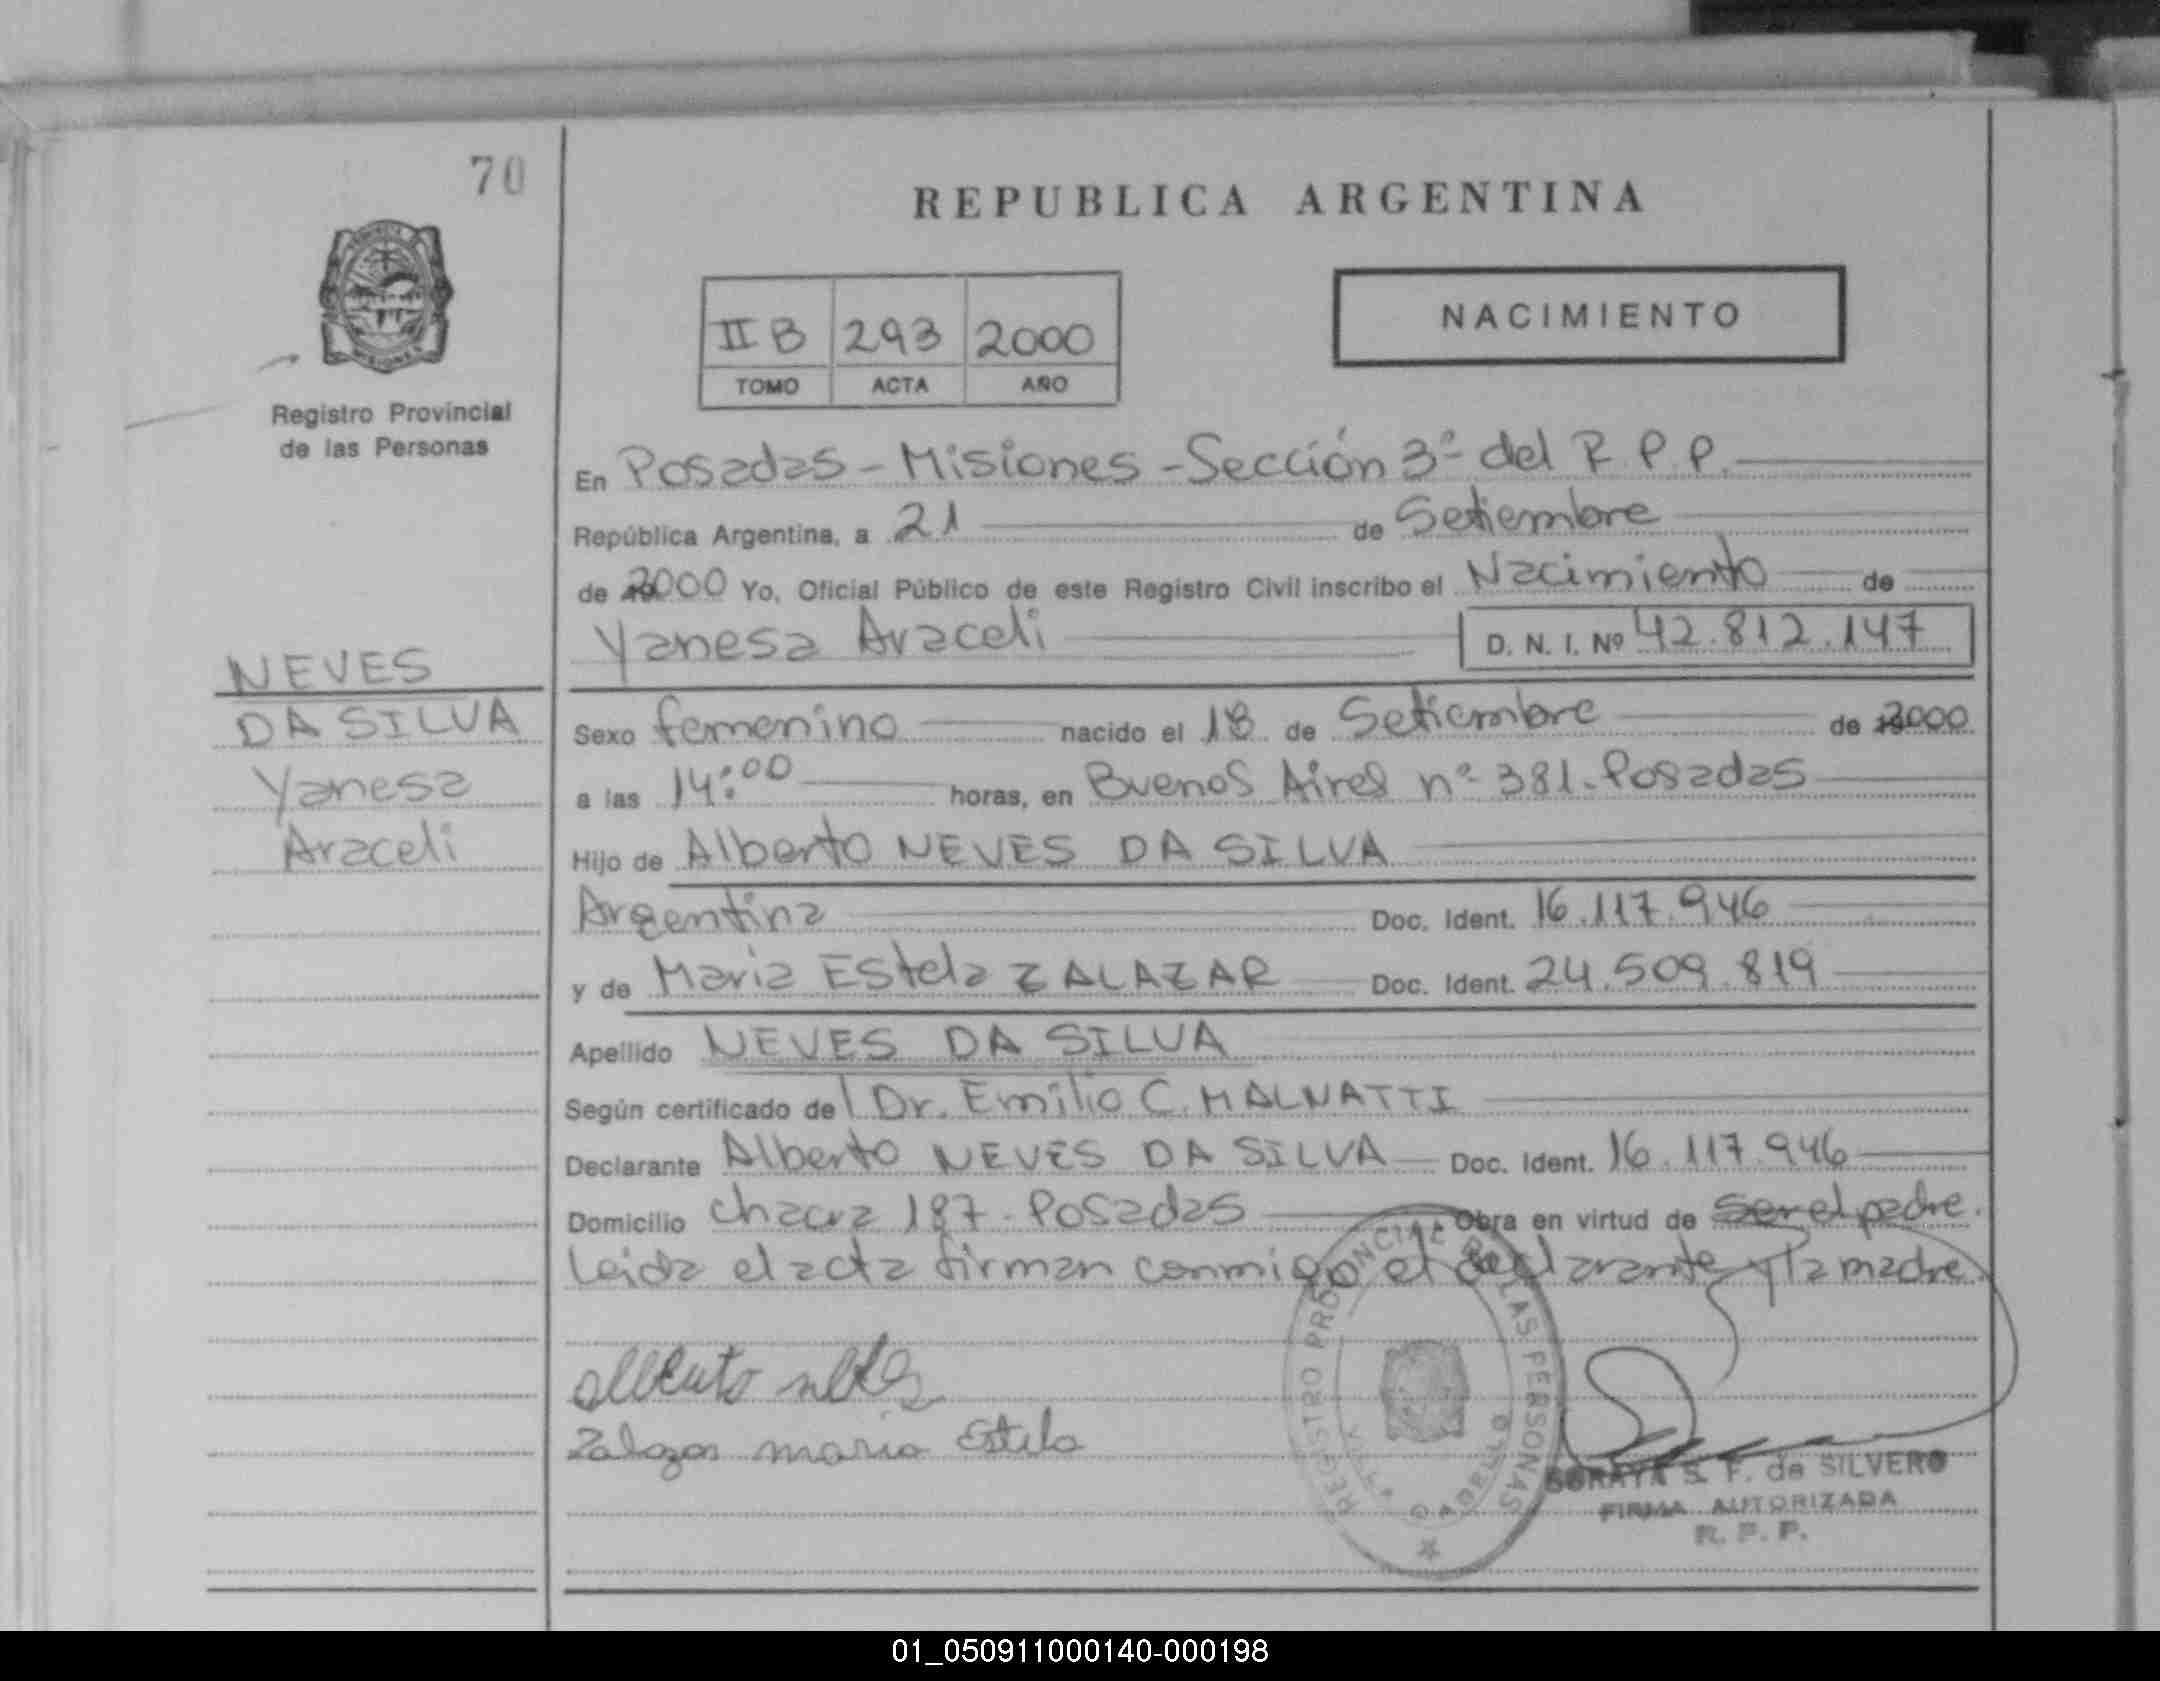 70
REPUBLICA ARGENTINA
NACIMIENTO
II B 293 2000
TOMO ACTA AÑO
Registro Provincial
de las Personas
En Posadas - Misiones - Sección 3ª del R.P.P.
República Argentina, a 21 de Setiembre
de 2000 Yo, Oficial Público de este Registro Civil inscribo el Nacimiento de
Yanesa Araceli D. N. I. Nº 42.812.147
NEVES
DA SILVA
Yanesa
Araceli
Sexo femenino nacido el 18 de Setiembre de 2000
a las 14:00 horas, en Buenos Aires nº 381. Posadas
Hijo de Alberto NEVES DA SILVA
Argentina Doc. Ident. 16.117.946
y de Maria EStela ZALAZAR Doc. Ident. 24.509.819
Apellido NEVES DA SILVA
Según certificado del Dr. Emilio C. MALNATTI
Declarante Alberto NEVES DA SILVA Doc. Ident. 16.117.946
Domicilio chacra 187 - Posadas Obra en virtud de ser el padre.
Leida el acta firman conmigo el declarante y la madre.
alberto neves
Zalazar maria Estela
REGISTRO PROVINCIAL DE LAS PERSONAS
VILLA CABELLO
SORAYA S. F. de SILVERO
FIRMA AUTORIZADA
R. P. P.
01_050911000140-000198